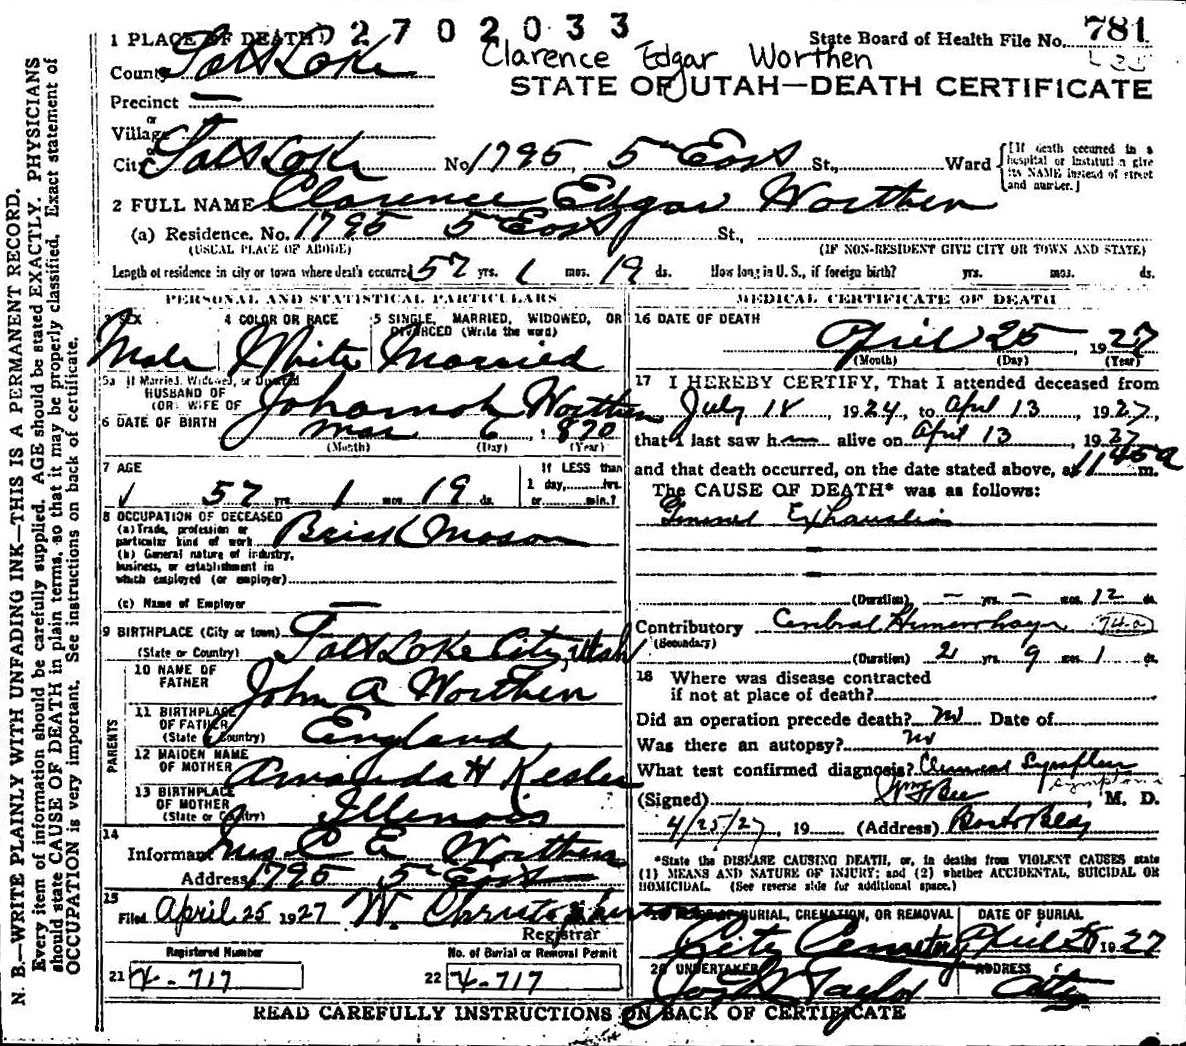 N. B.—WRITE PLAINLY WITH UNFADING INK—THIS IS A PERMANENT RECORD.
Every item of information should be carefully supplied. AGE should be stated EXACTLY. PHYSICIANS
should state CAUSE OF DEATH in plain terms, so that it may be properly classified. Exact statement of
OCCUPATION is very important. See instructions on back of certificate.
2702033
State Board of Health File No. 781
Clarence Edgar Worthen
STATE OF UTAH—DEATH CERTIFICATE
1 PLACE OF DEATH
County Salt Lake
Precinct —
or
Village
or
City Salt Lake No. 1795, 5 East St., Ward
[If death occurred in a
hospital or institution give
its NAME instead of street
and number.]
2 FULL NAME Clarence Edgar Worthen
(a) Residence. No. 1795 5 East St.,
(USUAL PLACE OF ABODE) (IF NON-RESIDENT GIVE CITY OR TOWN AND STATE)
Length of residence in city or town where death occurred 57 yrs. 1 mos. 19 ds. How long in U.S., if foreign birth? yrs. mos. ds.
PERSONAL AND STATISTICAL PARTICULARS
3 SEX
Male
4 COLOR OR RACE
White
5 SINGLE, MARRIED, WIDOWED, OR
DIVORCED (Write the word)
Married
5a If Married, Widowed, or Divorced
HUSBAND OF
(OR) WIFE OF
Johannah Worthen
6 DATE OF BIRTH Mar 6, 1870
(Month) (Day) (Year)
7 AGE
57 yrs. 1 mos. 19 ds.
If LESS than
1 day, hrs.
or min.?
8 OCCUPATION OF DECEASED
(a) Trade, profession or
particular kind of work Brick Mason
(b) General nature of industry,
business, or establishment in
which employed (or employer)
(c) Name of Employer —
9 BIRTHPLACE (City or town) Salt Lake City, Utah
(State or Country)
PARENTS
10 NAME OF
FATHER John A Worthen
11 BIRTHPLACE
OF FATHER
(State or Country) England
12 MAIDEN NAME
OF MOTHER Amanda H Kesler
13 BIRTHPLACE
OF MOTHER
(State or Country) Illinois
14
Informant Mrs C E Worthen
Address 1795 5 East
15
Filed April 25 1927 W. Christopherson
Registrar
Registered Number
21 4-717
No. of Burial or Removal Permit
22 4-717
MEDICAL CERTIFICATE OF DEATH
16 DATE OF DEATH
April 25, 1927
(Month) (Day) (Year)
17 I HEREBY CERTIFY, That I attended deceased from
July 18, 1924, to April 13, 1927,
that I last saw h alive on April 13, 1927
and that death occurred, on the date stated above, at 1145a m.
The CAUSE OF DEATH* was as follows:
General Exhaustion
(Duration) — yrs. — mos. 12 ds.
Contributory Cerebral Hemorrhage 74a
(Secondary)
(Duration) 2 yrs. 9 mos. 1 ds.
18 Where was disease contracted
if not at place of death?
Did an operation precede death? no Date of
Was there an autopsy? no
What test confirmed diagnosis? Clinical Symptoms
symptoms
(Signed) , M. D.
4/25/27, 19 (Address) Bldg
*State the DISEASE CAUSING DEATH, or, in deaths from VIOLENT CAUSES state
(1) MEANS AND NATURE OF INJURY; and (2) whether ACCIDENTAL, SUICIDAL OR
HOMICIDAL. (See reverse side for additional space.)
OF BURIAL, CREMATION, OR REMOVAL
City Cemetery
DATE OF BURIAL
April 28 1927
20 UNDERTAKER
Taylor
ADDRESS
City
READ CAREFULLY INSTRUCTIONS ON BACK OF CERTIFICATE